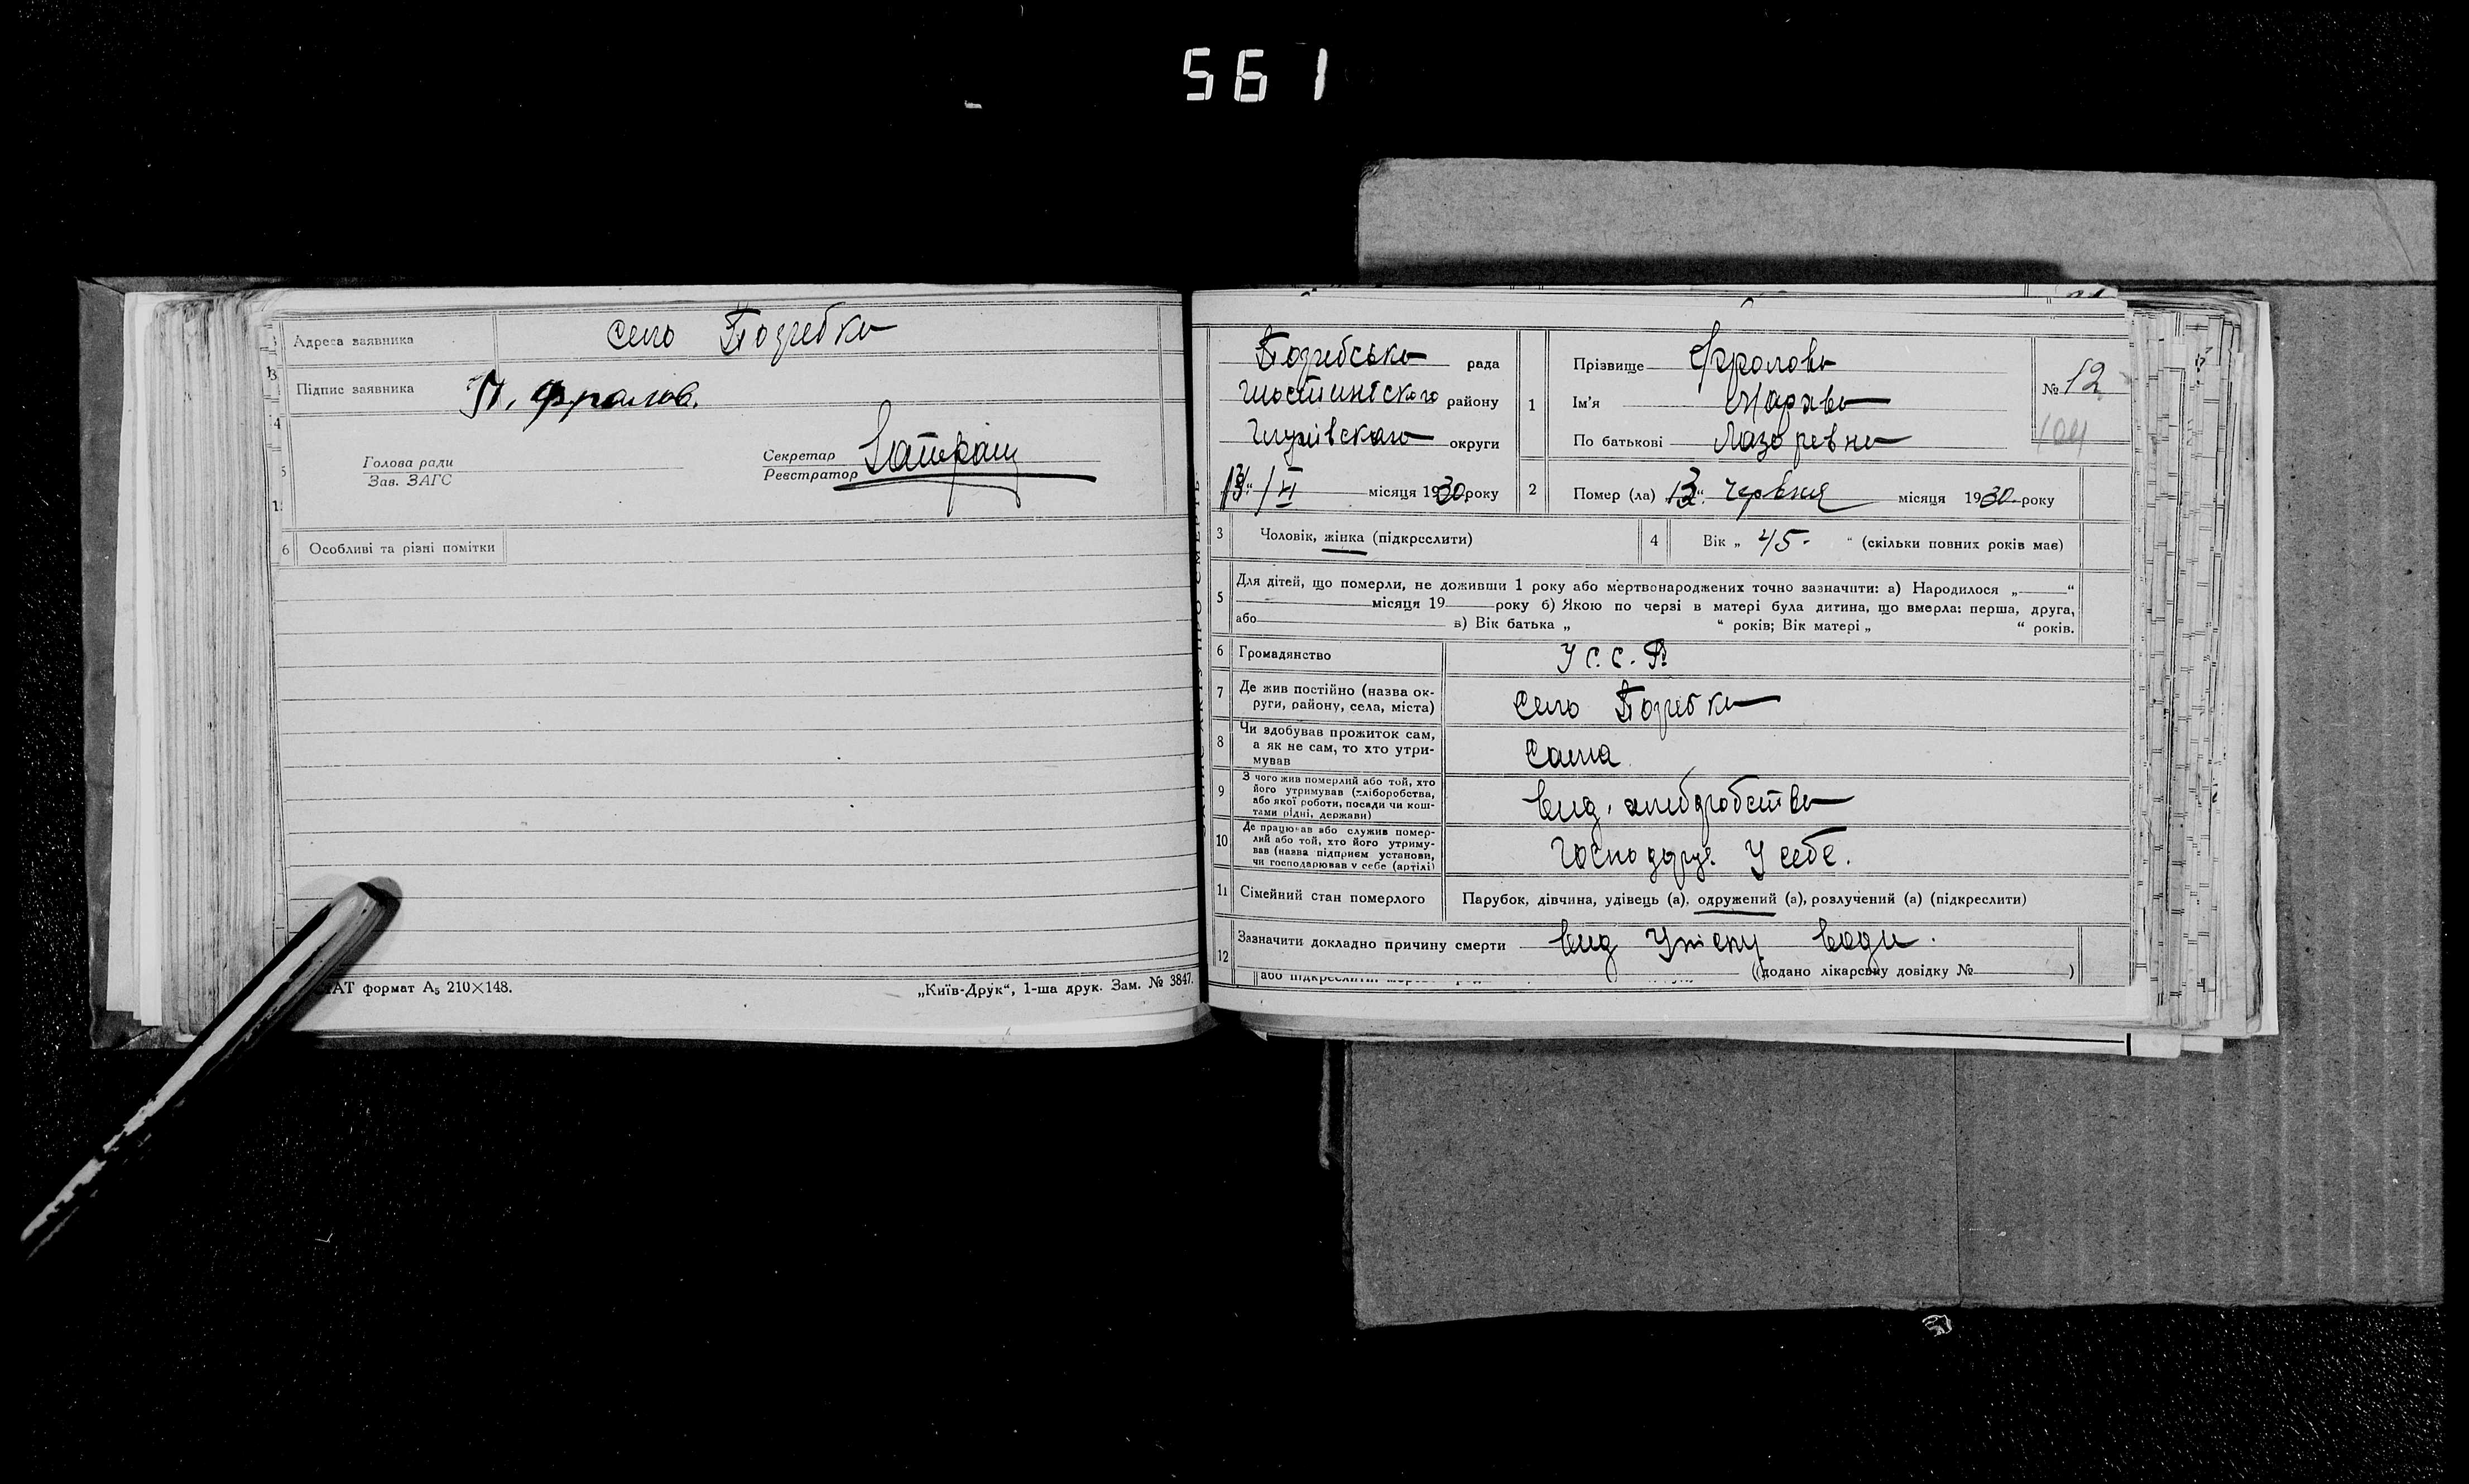 561
Адреса заявника село Погребки
Підпис заявника П. Фралов.
Голова ради
Зав. ЗАГС
Секретар
Реєстратор
6 Особливі та різні помітки
АТ формат А₅ 210×148.
„Київ-Друк“, 1-ша друк. Зам. № 3847.
Погребська рада
району
Глухівського округи
місяця 1930 року
1 Прізвище Фролова
Ім'я Марѳа
По батькові Лазоревна
№ 12
104
2 Помер (ла) 13 червня місяця 1930 року
3 Чоловік, жінка (підкреслити)
4 Вік „ 45 “ (скільки повних років має)
5 Для дітей, що померли, не доживши 1 року або мертвонароджених точно зазначити: а) Народилося „ “
місяця 19 року б) Якою по черзі в матері була дитина, що вмерла: перша, друга,
або в) Вік батька „ “ років; Вік матері „ “ років.
6 Громадянство У С. С. Р.
7 Де жив постійно (назва ок-
руги, району, села, міста) село Погребки
8 Чи здобував прожиток сам,
а як не сам, то хто утри-
мував сама
9 З чого жив померлий або той, хто
його утримував (хліборобства,
або якої роботи, посади чи кош-
тами рідні, держави) вид.
10 Де працював або служив помер-
лий або той, хто його утриму-
вав (назва підприєм установи,
чи господарював у себе (артілі) У себе.
11 Сімейний стан померлого Парубок, дівчина, удівець (а), одружений (а), розлучений (а) (підкреслити)
12 Зазначити докладно причину смерти вид води.
(додано лікарську довідку № )